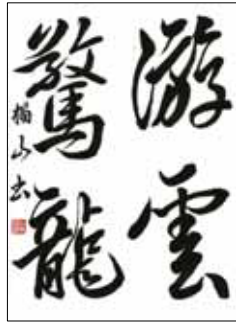 游雲
驚龍
山書